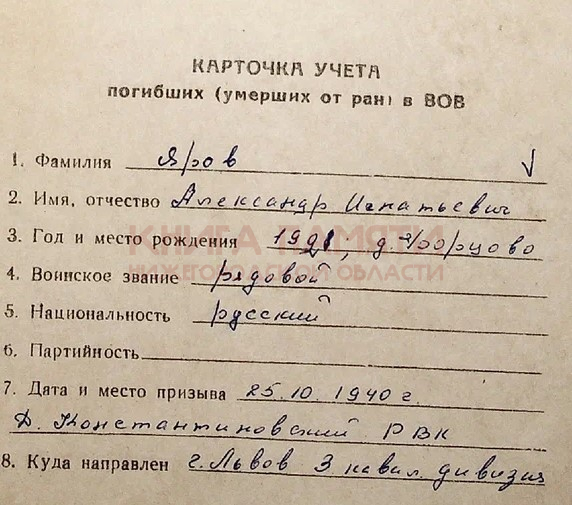 КАРТОЧКА УЧЕТА
погибших (умерших от ран) в ВОВ
1. Фамилия Яров
2. Имя, отчество Александр Игнатьевич
3. Год и место рождения 1921, д.
КНИГА ПАМЯТИ
НИЖЕГОРОДСКОЙ ОБЛАСТИ
4. Воинское звание рядовой
5. Национальность русский
6. Партийность
7. Дата и место призыва 25.10.1940 г.
Д. Константиновский РВК
8. Куда направлен г. Львов 3 кавал. дивизия